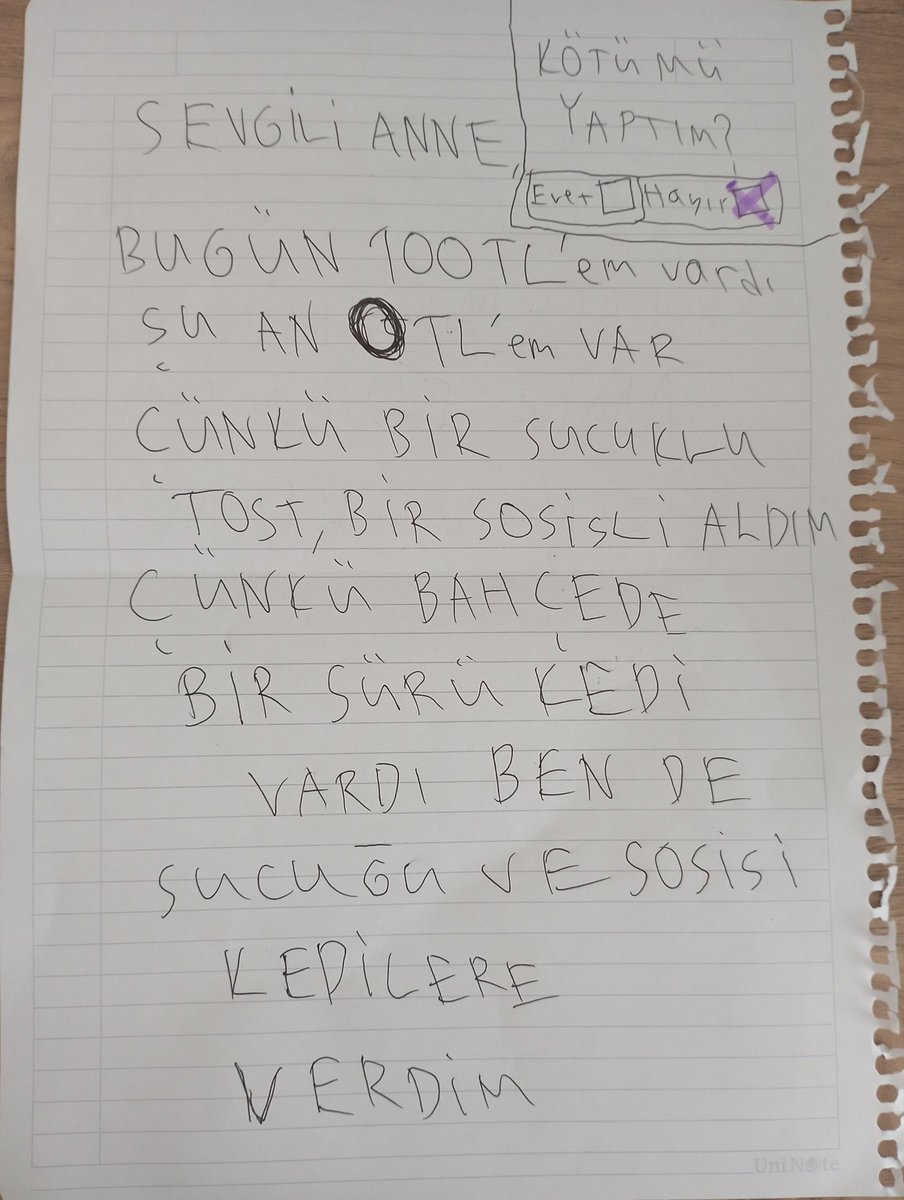 KÖTÜMÜ
YAPTIM?
Evet Hayır
SEVGİLİ ANNE,
BUGÜN 100TL'em vardı
ŞU AN 0TL'em VAR
ÇÜNKÜ BİR SUCUKLU
TOST, BİR SOSİSLİ ALDIM
ÇÜNKÜ BAHÇEDE
BİR SÜRÜ KEDİ
VARDI BEN DE
SUCUĞU VE SOSİSİ
KEDİLERE
VERDİM
UniNote